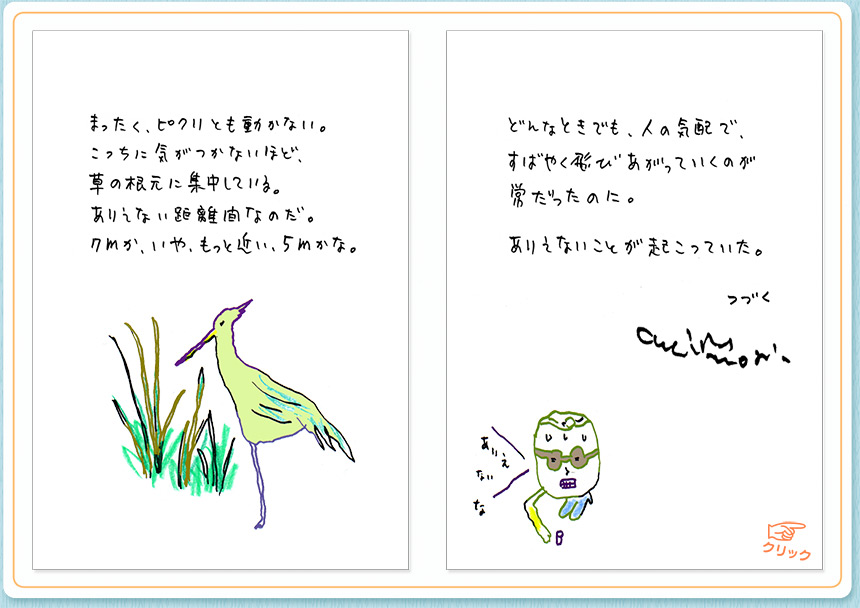 まったく、ピクリとも動かない。
こっちに気がつかないほど、
草の根元に集中している。
ありえない距離間なのだ。
7mか、いや、もっと近い、5mかな。
どんなときでも、人の気配で、
すばやく飛びあがっていくのが
常だったのに。
ありえないことが起こっていた。
つづく
ありえ
ない
な
クリック